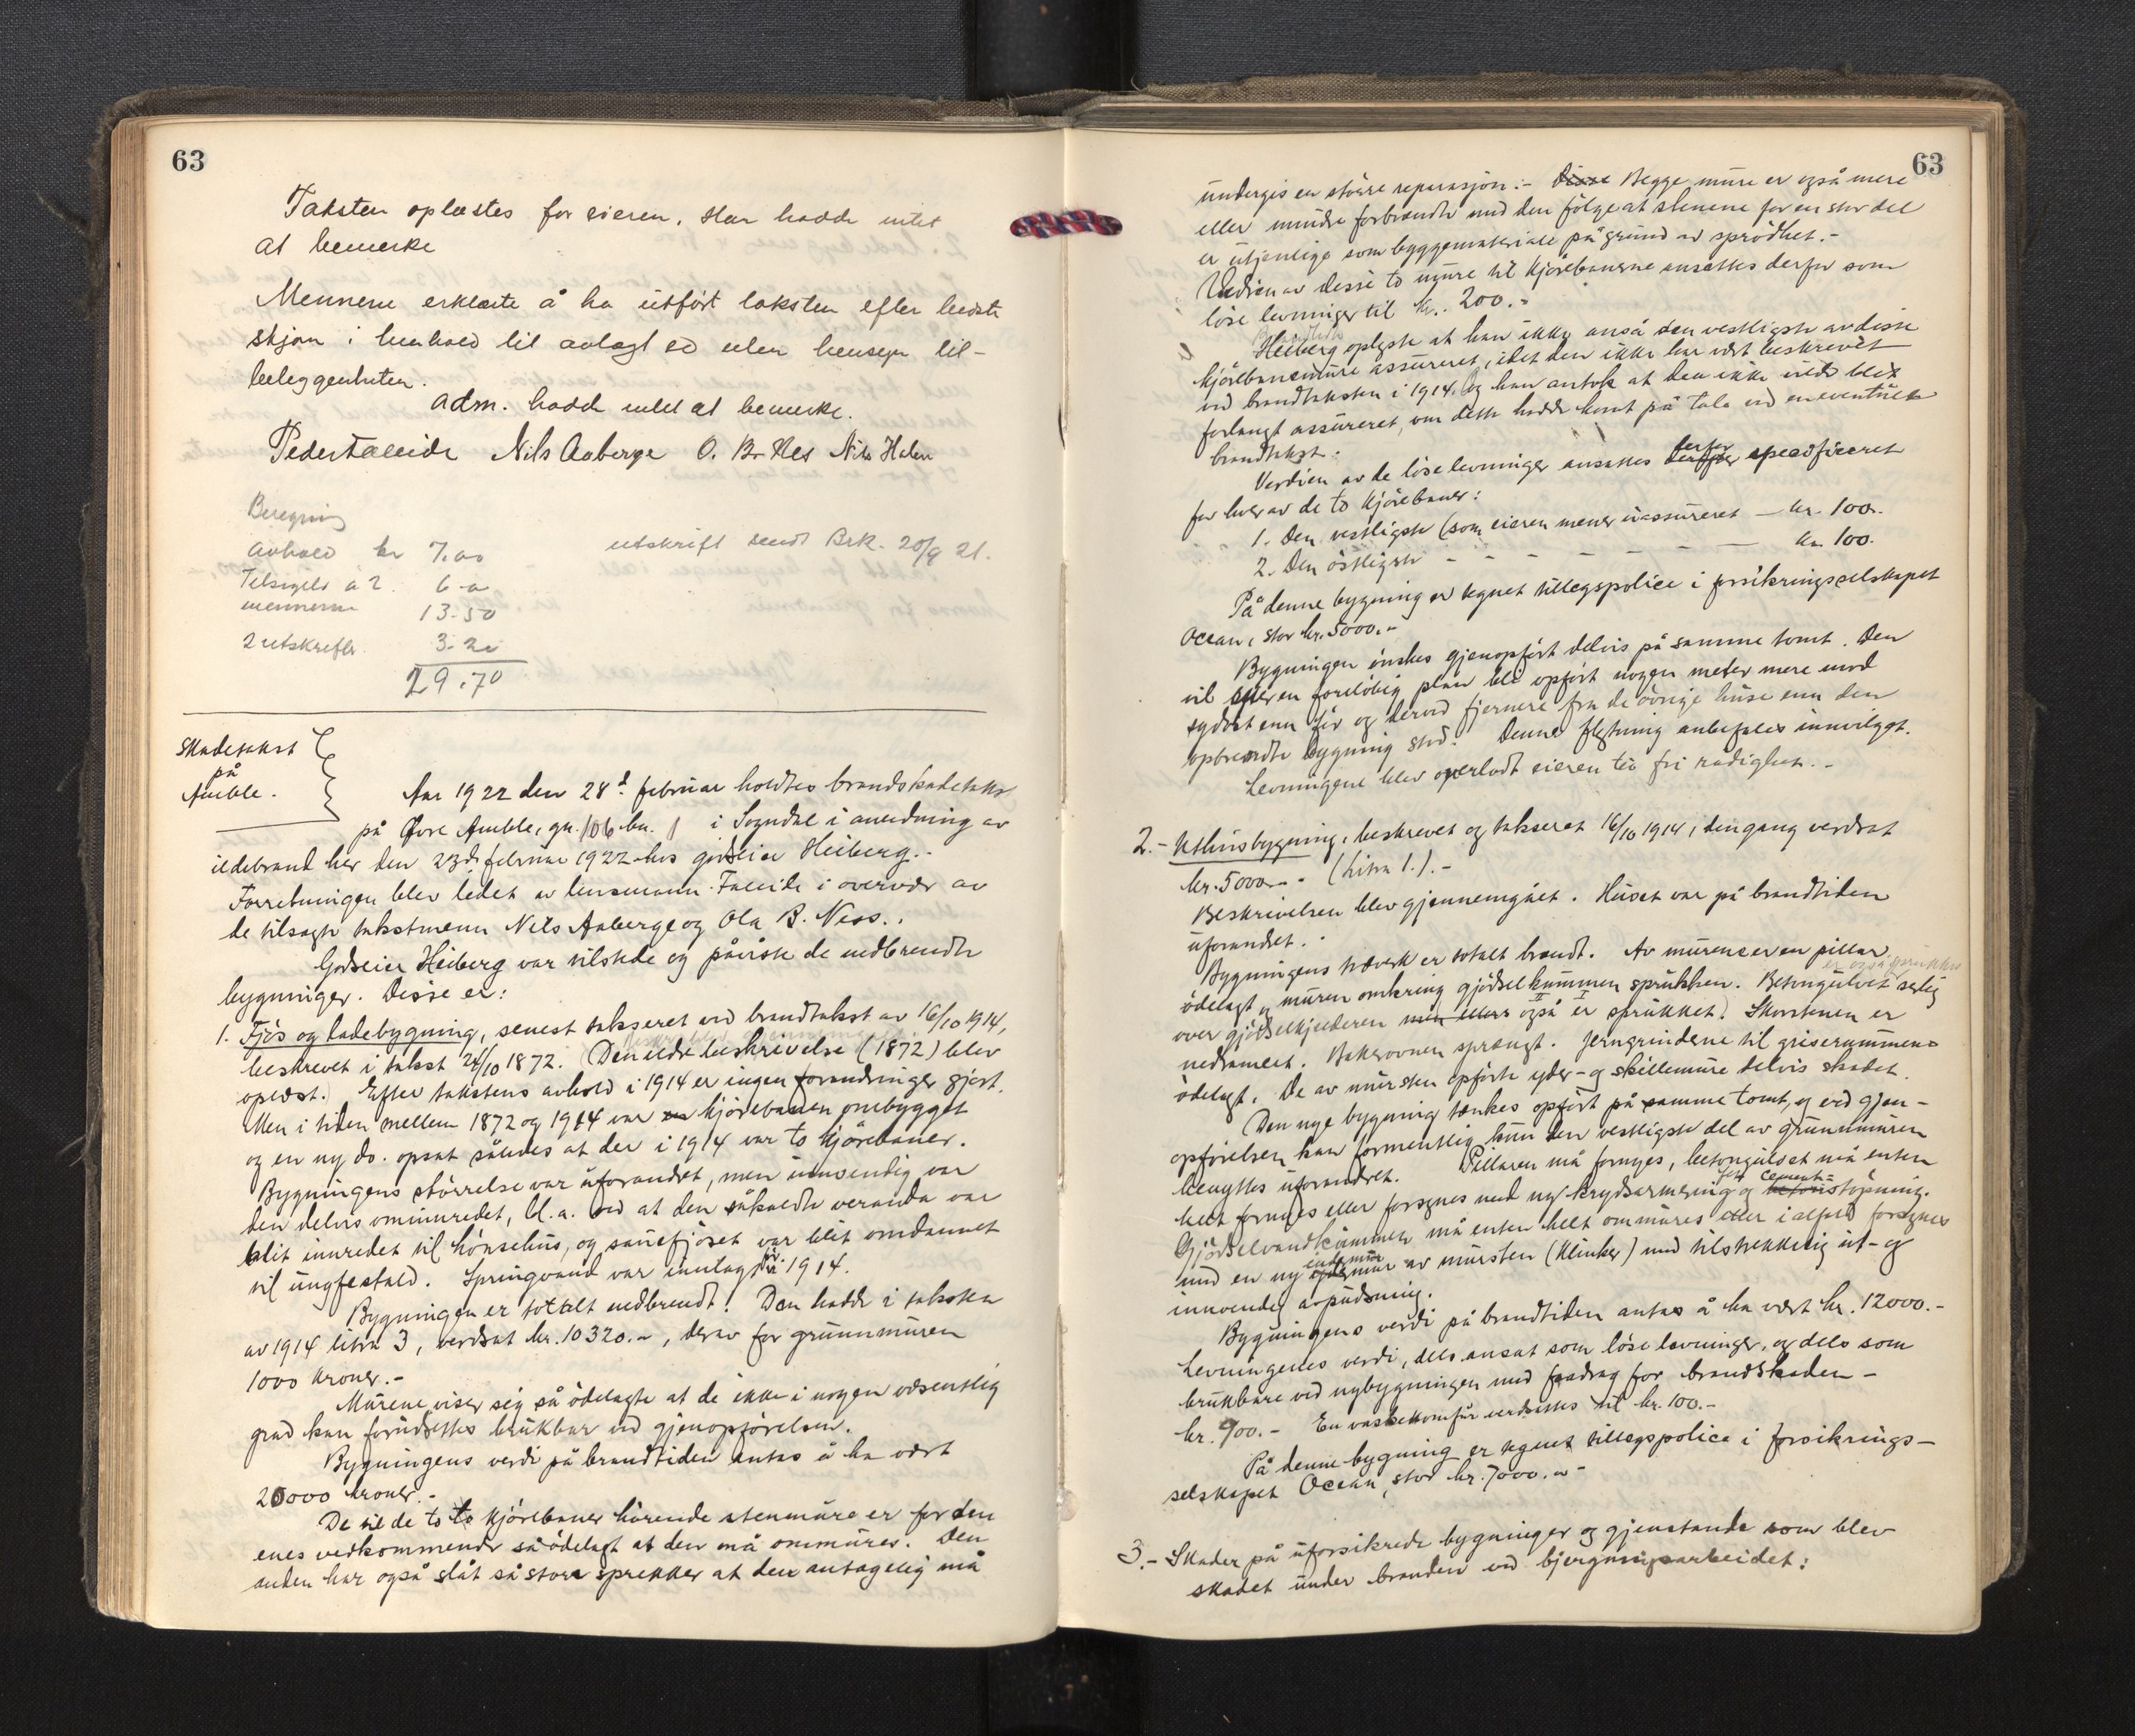 63
Taksten oplæstes for eieren. Han hadde intet
at bemerke
Mennene erklærte å ha utført taksten efter bedste
skjøn i henhold til avlagt ed uten hensyn til-
beleggenheten.
Adm. hadde intet at bemerke.
Peder Falleide Nils Aaberge O. B. Nes Nils Halen
Beregning
Avhold kr 7.00 utskrift sendt Brk. 20/9 21.
a 2. 6.00
mennerne 13.50
2 utskrefter. 3.20
29.70
Skadetakst
på
Amble.
Aar 1922 den 28d februar holdtes brandskadetakst
på Øvre Amble, gn. 106 bn. 1 i Sogndal i anledning av
ildebrand her den 23de februar 1922 hos godseier Heiberg.-
Forretningen blev ledet av lensmann Falleide i overvær av
de tilsagte takstmenn Nils Aaberge og Ola B. Ness.
Godseier Heiberg var tilstede og påviste de nedbrendte
bygninger. Disse er:
1. Fjøs og ladebygning, senest taksert ved brandtakst av 16/10 1914,
beskrevet i takst 24/10 1872. Den eldre beskrivelse (1872) blev
oplæst. Efter takstens avhold i 1914 er ingen forandringer gjort.
Men i tiden mellem 1872 og 1914 var en kjørebanen ombygget
og en ny do. opsat således at der i 1914 var to kjørebaner.
Bygningens størrelse var uforandret, men innvendig var
den delvis ominnredet, bl. a. ved at den såkaldte veranda var
blit innredet til hønsehus, og sauefjøset var blit omdannet
til ungfestald. Springvand var inntagt før 1914.
Bygningen er totalt nedbrendt. Den hadde i taksten
av 1914 litra 3, verdsat kr. 10320.-, derav for grunnmuren
1000 kroner.-
Murene viser sig så ødelagte at de ikke i nogen væsentlig
grad kan forutsettes brukbar ved gjenopførelsen.
Bygningens verdi på brandtiden antas å ha vært
20000 kroner.-
De til de to to kjørebaner hørende stenmure er for den
enes vedkommende så ødelagt at den må ommures. Den
anden har også slåt så store sprekker at den antagelig må
63
undergis en større reparasjon.- Disse Begge mure er også mere
eller mindre forbrendte med den følge at stenene for en stor del
er utjenlige som byggemateriale på grund av sprødhet.-
Verdien av disse to mure til kjørebanerne ansettes derfor som
løse levninger til kr. 200.-
Heiberg oplyste at han ikke anså den vestligste av disse
kjørebanemure assureret, idet den ikke har vært beskrevet
ved brandtaksten i 1914. Og han antok at den ikke vilde blit
forlangt assureret, om dette hadde komt på tale ved en eventuel
brandtakst.
Verdien av de løse levninger ansattes derfor derfor specificeret
for hver av de to kjørebaner:
1. Den vestligste (som eieren mener uassureret — kr. 100.
2. Den østligste - - - - - — kr. 100.
På denne bygning er tegnet tillegspolice i forsikringsselskapet
Ocean, stor kr. 5000.-
Bygningen ønskes gjenopført delvis på samme tomt. Den
vil efter en foreløbig plan bli opført nogen meter mere mod
sydost enn før og derved fjernere fra de øvrige huse enn den
opbrendte bygning stod. Denne flytning anbefales innvilget.
Levningene blev overladt eieren til fri rådighet.-
2.- Uthusbygning, beskrevet og takseret 16/10 1914, dengang verdsat
kr. 5000.- (Litra 1.).-
Beskrivelsen blev gjennemgået. Huset var på brandtiden
uforandret.
Bygningens træverk er totalt brendt. Av murene er en pillar
er også sprukket
ødelagt og muren omkring gjødselkummen sprukken. Betongulvet særlig
over gjødselkjelderen også er sprukket. Skorstenen er
nedramlet. Bakerovnen sprængt. Jerngrindene til griserummene
ødelagt. De av mursten opførte yder- og skillemure delvis skadet.
Den nye bygning tænkes opført på samme tomt, og ved gjen-
opførelsen kan formentlig kun den vestligste del av grunnmuren
benyttes uforandret. Pillaren må fornyes, betongulvet må enten
helt fornyes eller forsynes med ny krydsarmering og cement- støpning.
Gjødselvandkummen må enten helt ommures eller i alfald forsynes
med en ny mur av mursten (klinker) med tilstrekkelig ut- og
innvendig avpudsning.
Bygningens verdi på brandtiden antas å ha vært kr. 12000.-
Levningenes verdi, dels ansat som løse levninger, og dels som
brukbare ved nybygningen med fradrag for brandskaden -
kr. 900.- En vaskekomfur verdsettes til kr. 100.-
På denne bygning er tegnet tillegspolice i forsikrings-
selskapet Ocean, stor kr. 7000.-
3.- Skader på uforsikrede bygninger og gjenstande som blev
skadet under branden ved bjergningsarbeidet: